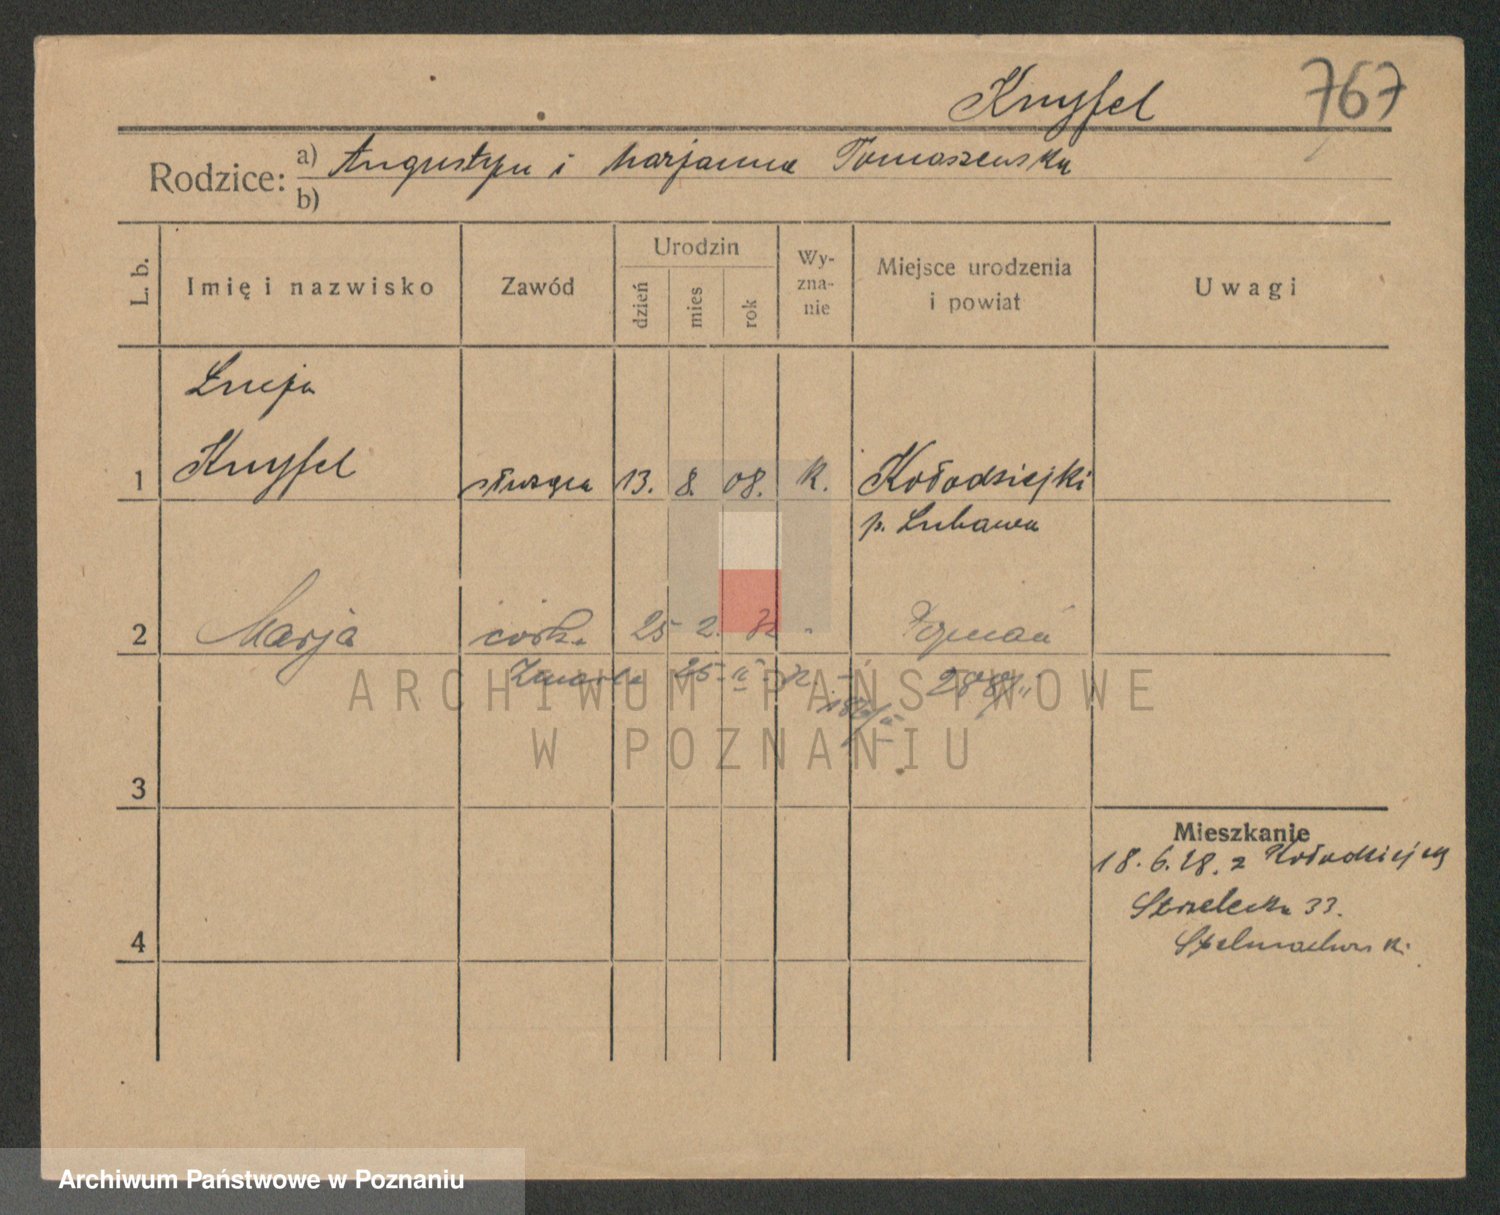 Knyfel 767
Rodzice: a) Augustyn i Marjanna Tomaszewska
b)
L. b. Imię i nazwisko Zawód Urodzin dzień mies rok Wyznanie Miejsce urodzenia i powiat Uwagi
Łucja
1 Knyfel służąca 13. 8. 08. K. Kołodziejki
p. Lubawa
2 Marja córka 25 2. Poznań
Zmarła 25. II
3
Mieszkanie
18. 6. 28. z
Strzelecka 33.
4
ARCHIWUM PAŃSTWOWE
W POZNANIU
Archiwum Państwowe w Poznaniu